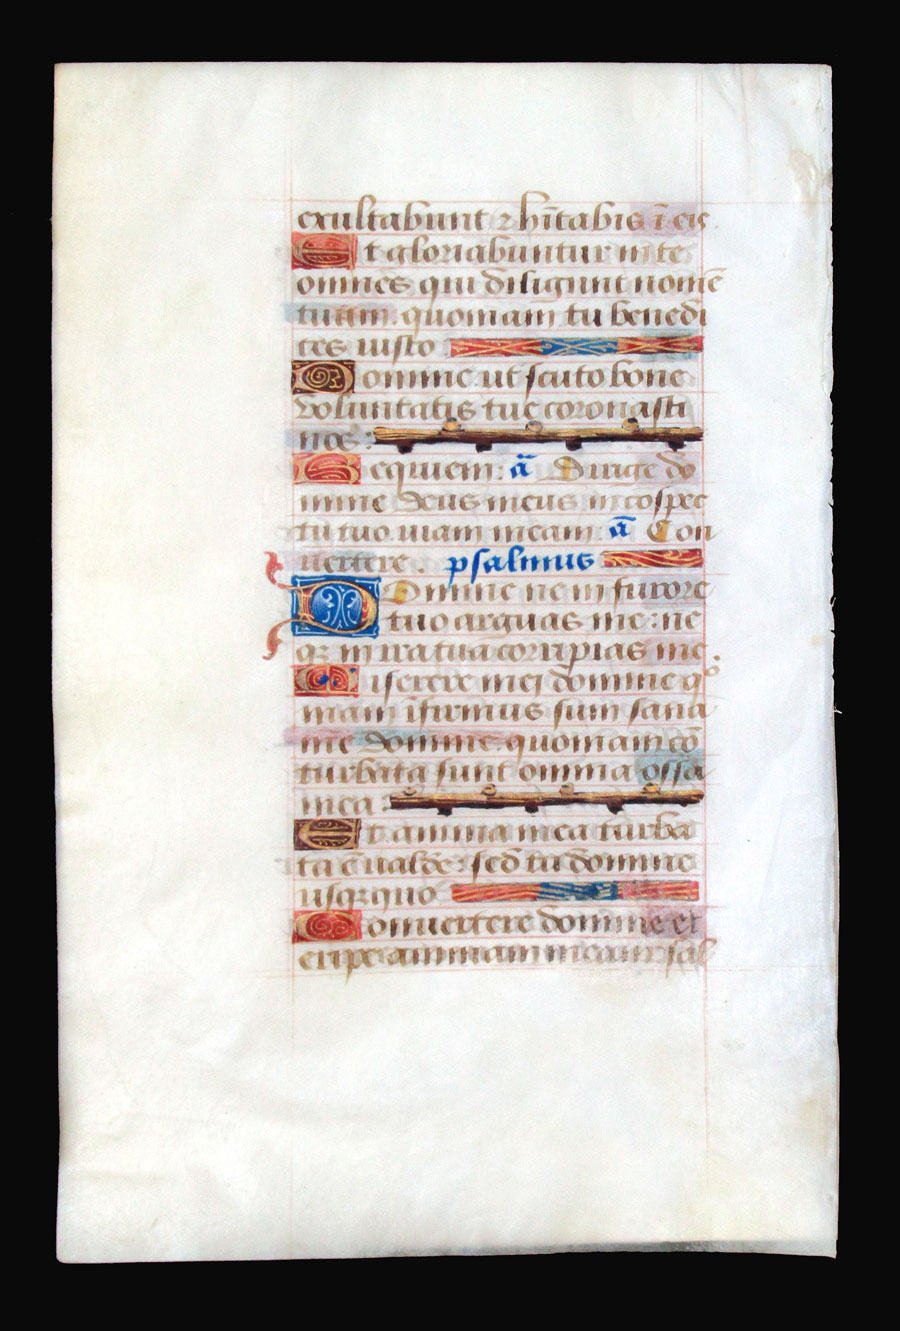 exultabunt ⁊ hītabis ī eis.
Et gloriabuntur in te
omnes qui diligunt nomē
tuum. quoniam tu benedi
ces iusto
Domine ut scuto bone
voluntatis tue coronasti
nos :
Requiem. ā Dirige do
mine deus meus in cōspec
tu tuo uiam meam. ā Con
uertere psalmus
Domine ne in furore
tuo arguas me : ne
qȝ in ira tua corripias me.
Miserere mei domine qº
niam īfirmus sum sana
me domine. quoniam cō
turbata sunt omnia ossa
mea :
Et anima mea turba
ta ē ualde : sed tu domine
usqȝquo
Conuertere domine et
eripe animam meam sal